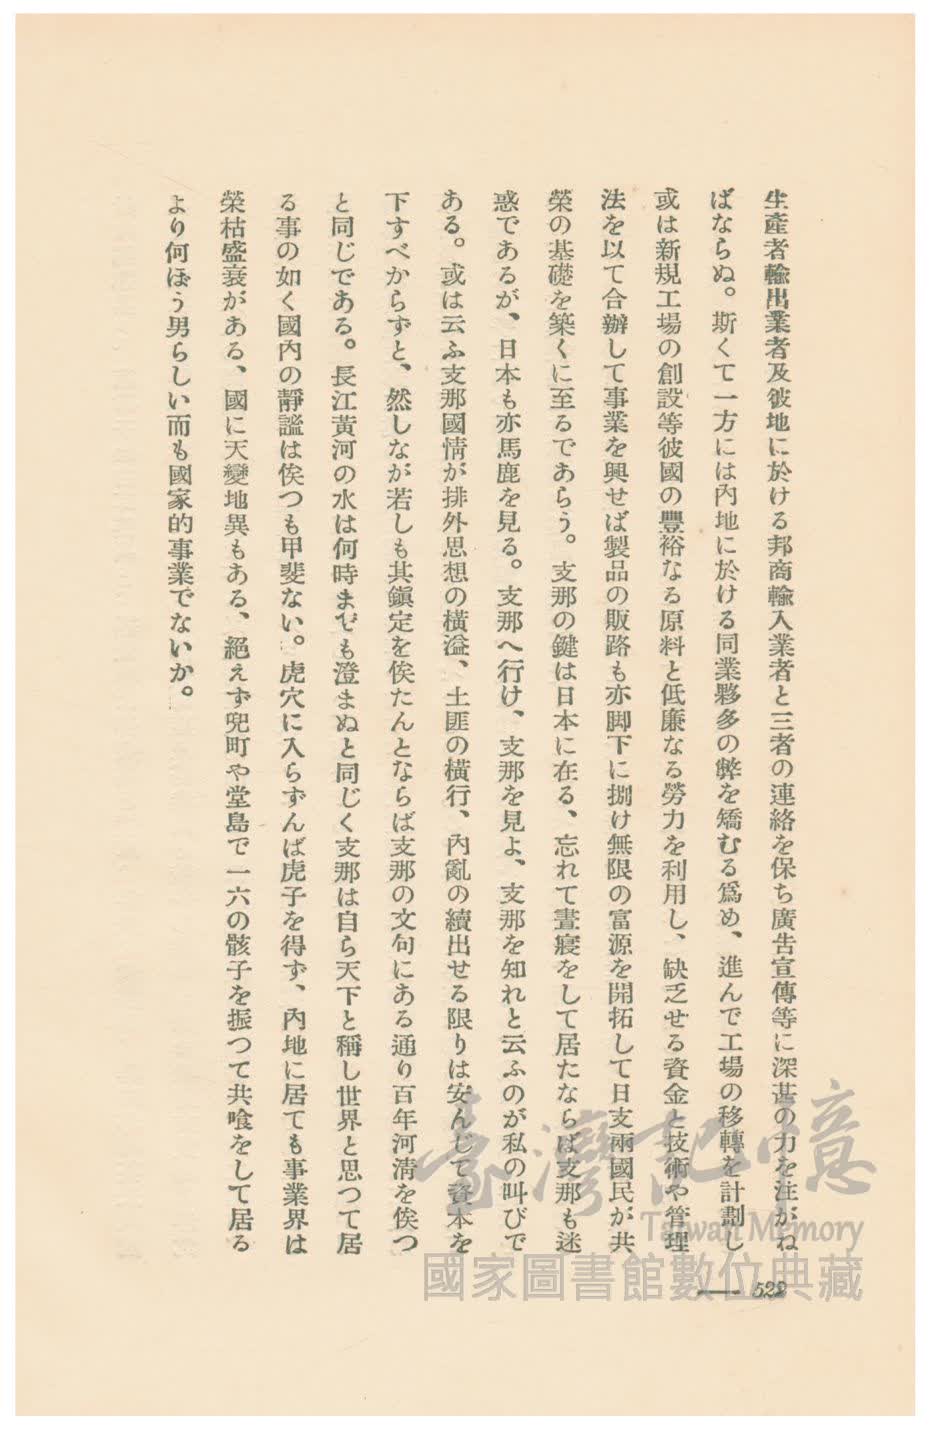 生產者輸出業者及彼地に於ける邦商輸入業者と三者の連絡を保ち廣吿宣傳等に深甚の力を注がね
ばならぬ。斯くて一方には內地に於ける同業夥多の弊を矯むる爲め、進んで工場の移轉を計劃し
或は新規工場の創設等彼國の豐裕なる原料と低廉なる勞力を利用し、缺乏せる資金と技術や管理
法を以て合辦して事業を興せば製品の販路も亦脚下に捌け無限の富源を開拓して日支兩國民が共
榮の基礎を築くに至るであらう。支那の鍵は日本に在る、忘れて晝寢をして居たならば支那も迷
惑であるが、日本も亦馬鹿を見る。支那へ行け、支那を見よ、支那を知れと云ふのが私の叫びで
ある。或は云ふ支那國情が排外思想の橫溢、土匪の橫行、內亂の續出せる限りは安んじて資本を
下すべからずと、然しなが若しも其鎭定を俟たんとならば支那の文句にある通り百年河淸を俟つ
と同じである。長江黃河の水は何時までも澄まぬと同じく支那は自ら天下と稱し世界と思つて居
る事の如く國內の靜謐は俟つも甲斐ない。虎穴に入らずんば虎子を得ず、內地に居ても事業界は
榮枯盛衰がある、國に天變地異もある、絕えず兜町や堂島で一六の骰子を振つて共喰をして居る
より何ぼう男らしい而も國家的事業でないか。
522
臺灣記憶
Taiwan Memory
國家圖書館數位典藏